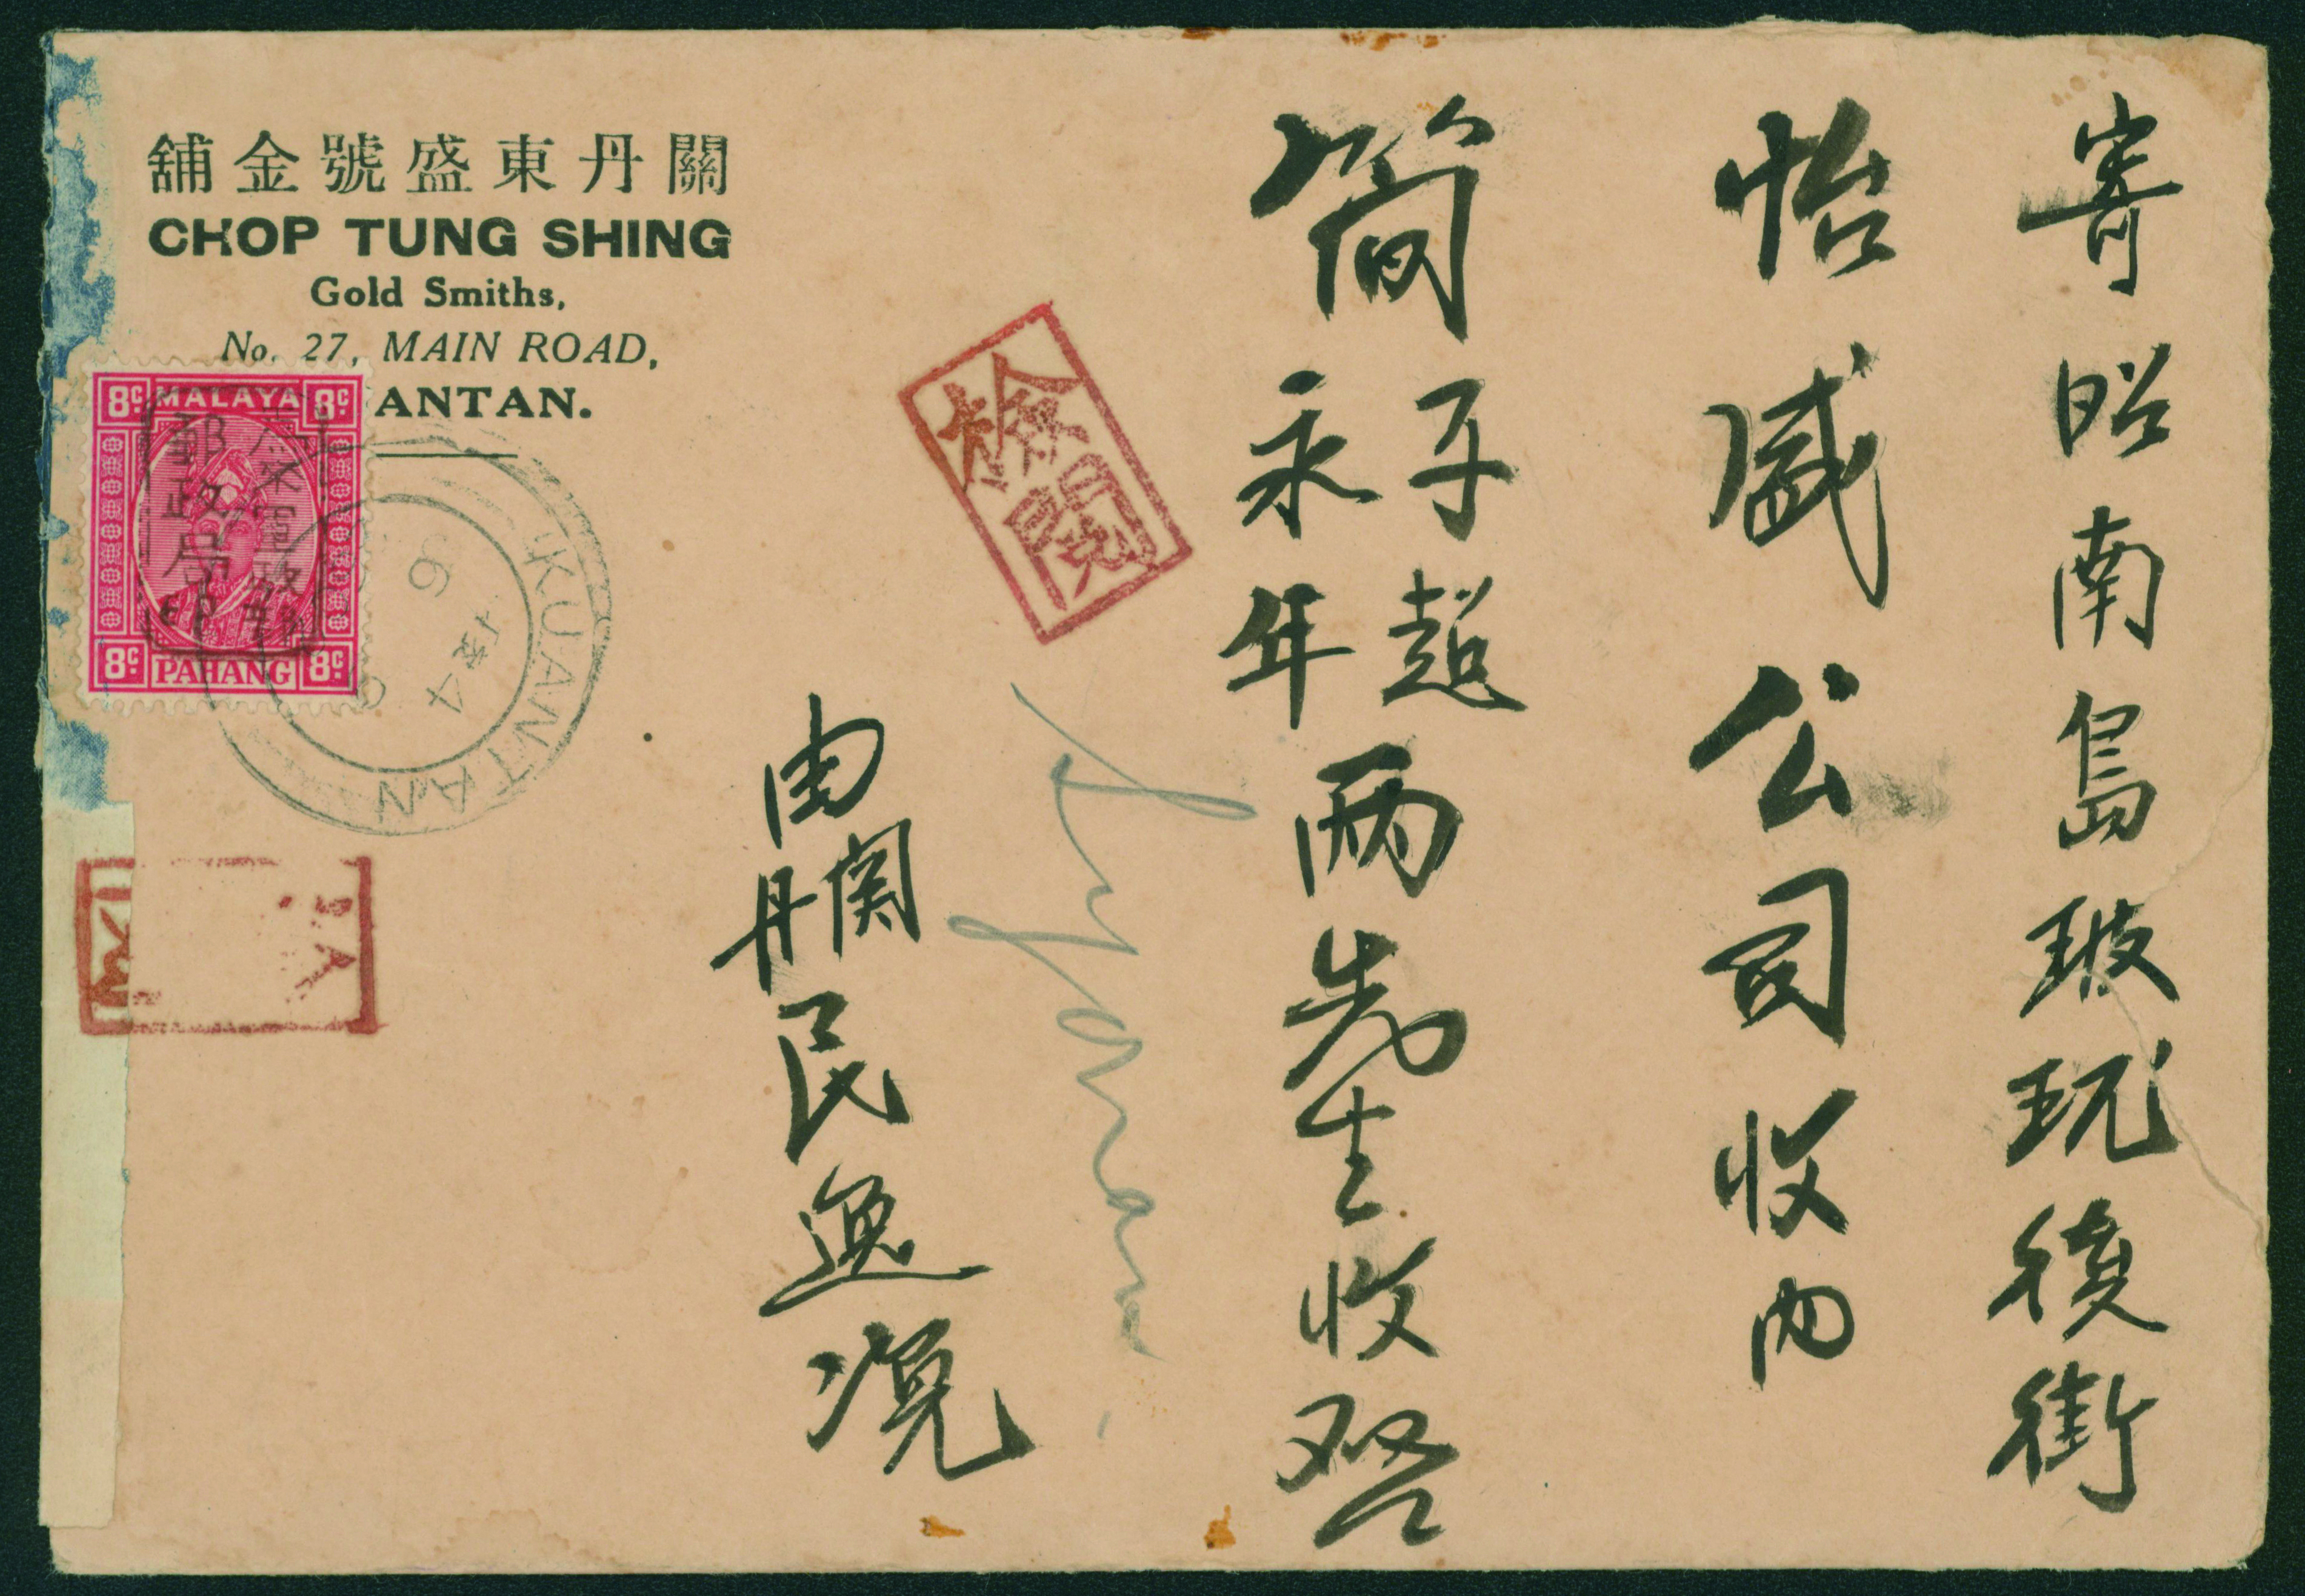 舖金號盛東丹關
CHOP TUNG SHING
Gold Smiths,
No. 27, MAIN ROAD,
ANTAN.
8c MALAYA 8c
8c PAHANG 8c
郵政局
KUANTAN
檢閱
寄昭南島玻玩後街
怡盛公司收內
簡子超
永年
兩先生收啓
由關丹民逸滉